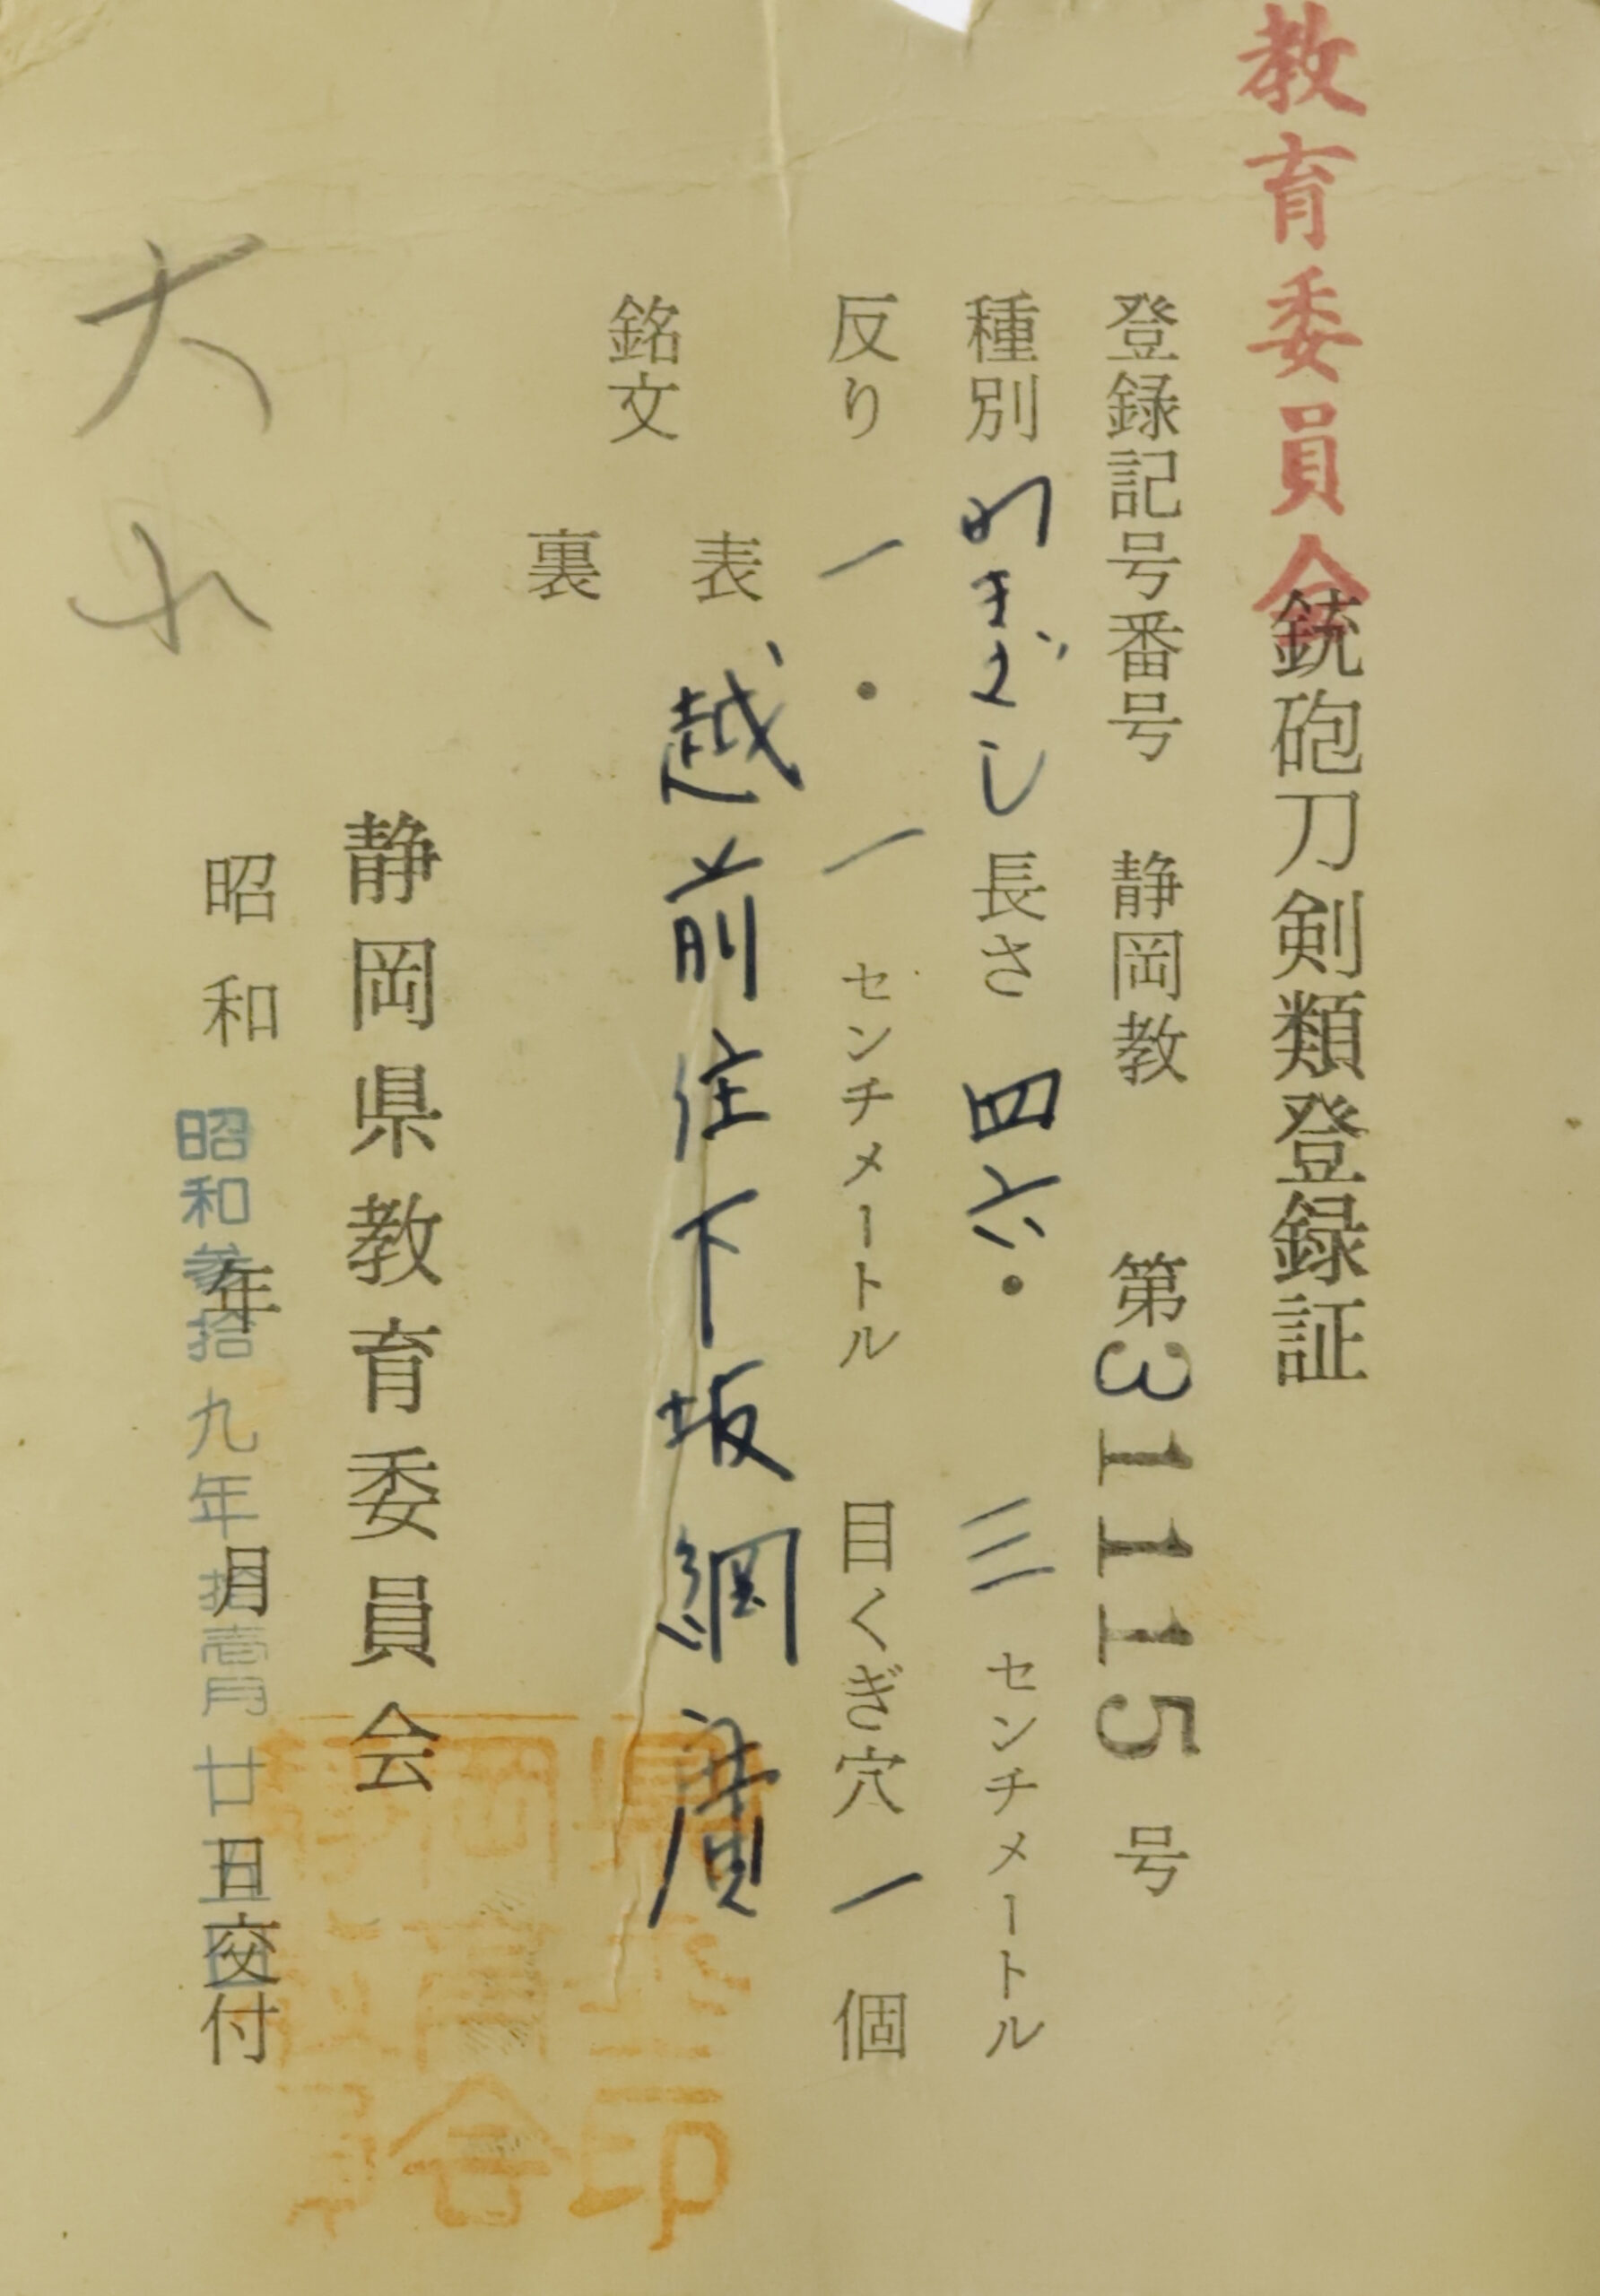 教育委員会
銃砲刀剣類登録証
登録記号番号 静岡教 第31115号
種別 わきざし 長さ 四六・三 センチメートル
反り 一・一 センチメートル 目くぎ穴 一 個
銘文
表 越前住下坂綱廣
裏
静岡県教育委員会
昭和 年 月 日交付
昭和参拾九年拾壱月廿五日
大小